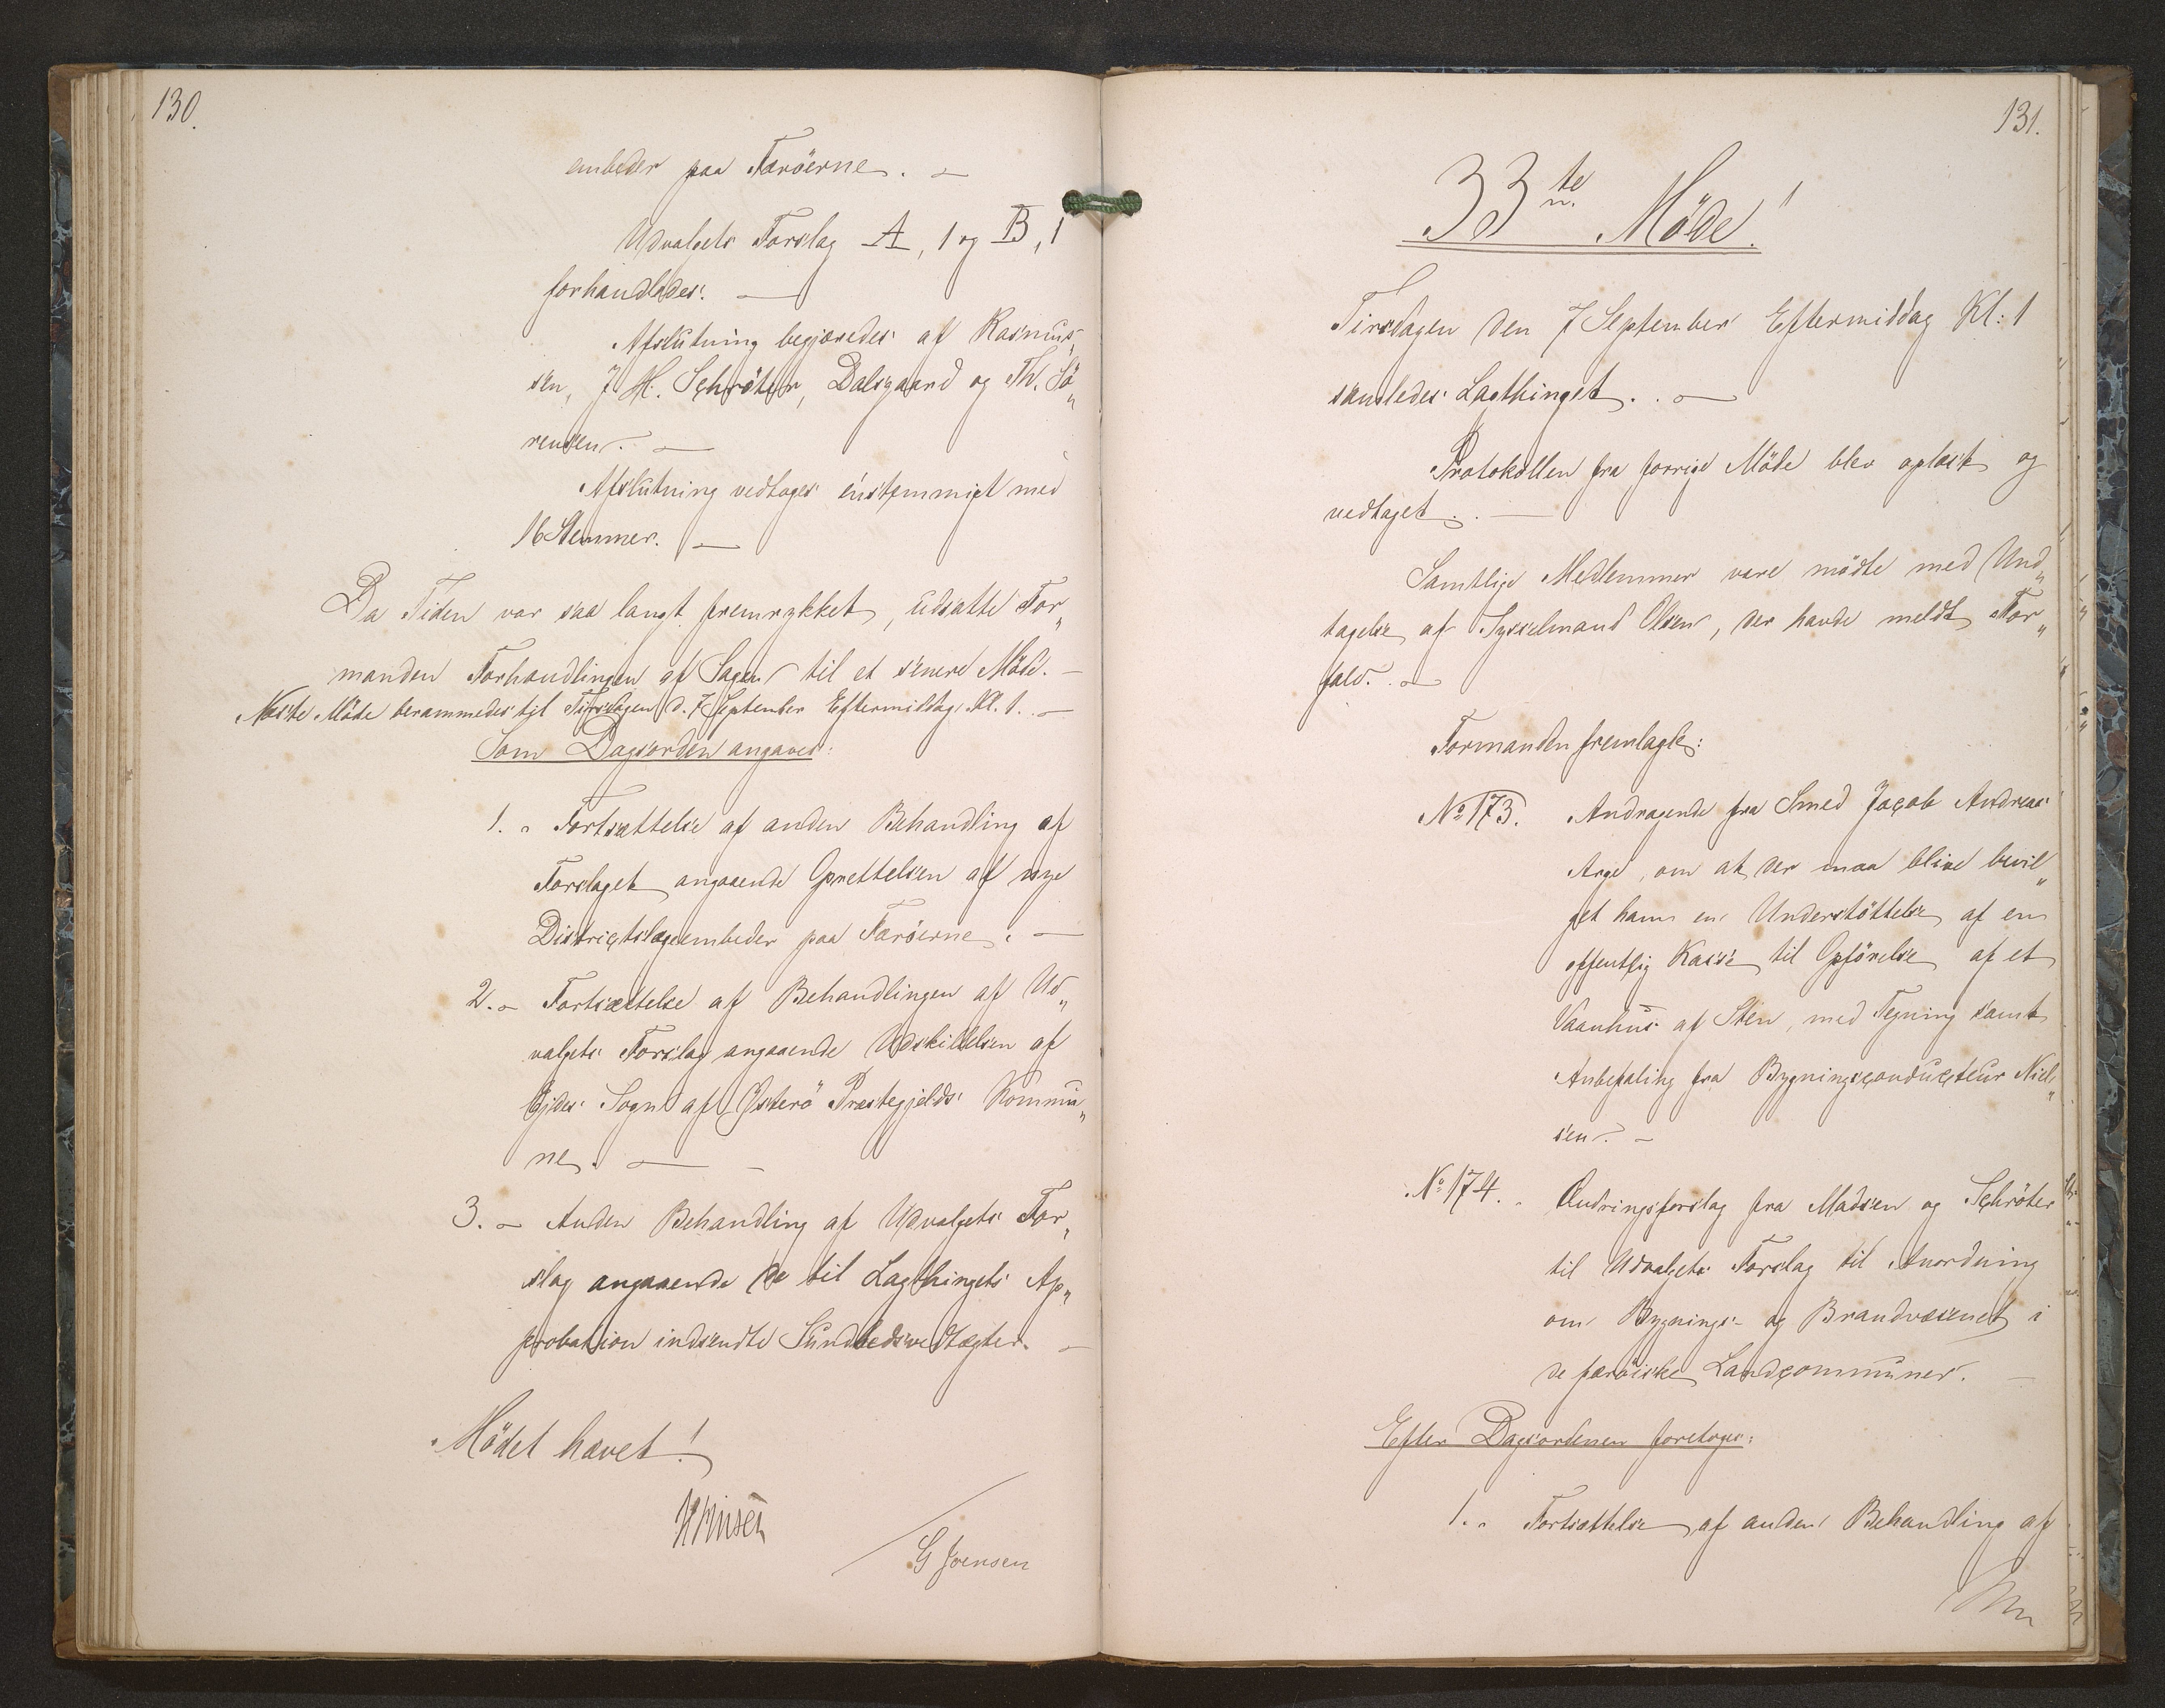 130.
embeder paa Færöerne. —
Udvalgets Forslag A, 1 og B, 1
forhandledes. —
Afslutning begjæredes af Rasmus„
sen, J. H. Schröter, Dalsgaard og Th. Sö„
rensen. —
Afslutning vedtoges énstemmigt med
16 Stemmer. —
Da Tiden var saa langt fremrykket, udsatte For„
manden Forhandlingen af Sagen til et senere Möde. —
Næste Möde berammedes til Tirsdagen d. 7 September Eftermiddag Kl. 1. —
Som Dagsorden angaves:
1. - Fortsættelse af anden Behandling af
Forslaget angaaende Oprettelsen af nye
Districtslægeembeder paa Færöerne. —
2. - Fortsættelse af Behandlingen af Ud„
valgets Forslag angaaende Udskillelsen af
Ejdes Sogn af Österö Præstegjelds Kommu„
ne. —
3. - Anden Behandling af Udvalgets For„
slag angaaende de til Lagthingets Ap„
probation indsendte Sundhedsvedtægter. —
Mödet hævet!
G Joensen
131.
33te Möde!
Tirsdagen den 7 September Eftermiddag Kl: 1
samledes Lagthinget. —
Protokollen fra forrige Möde blev oplæst og
vedtaget. —
Samtlige Medlemmer vare mödte med Und„
tagelse af Sysselmand Olsen, der havde meldt For„
fald. —
Formanden fremlagde:
No 173. Andragende fra Smed Jacob Andreas
Arge, om at der maa blive bevil„
get ham en Understöttelse af en
offentlig Kasse til Opförelse af et
Vaanhus af Sten, med Tegning samt
Anbefaling fra Bygningsconducteur Niel„
sen. —
No 174. - Ændringsforslag fra Madsen og Schröter
til Udvalgets Forslag til Anordning
om Bygnings- og Brandvæsenet i
de færöiske Landcommuner. —
Efter Dagsordenen foretoges:
1. - Fortsættelse af anden Behandling af